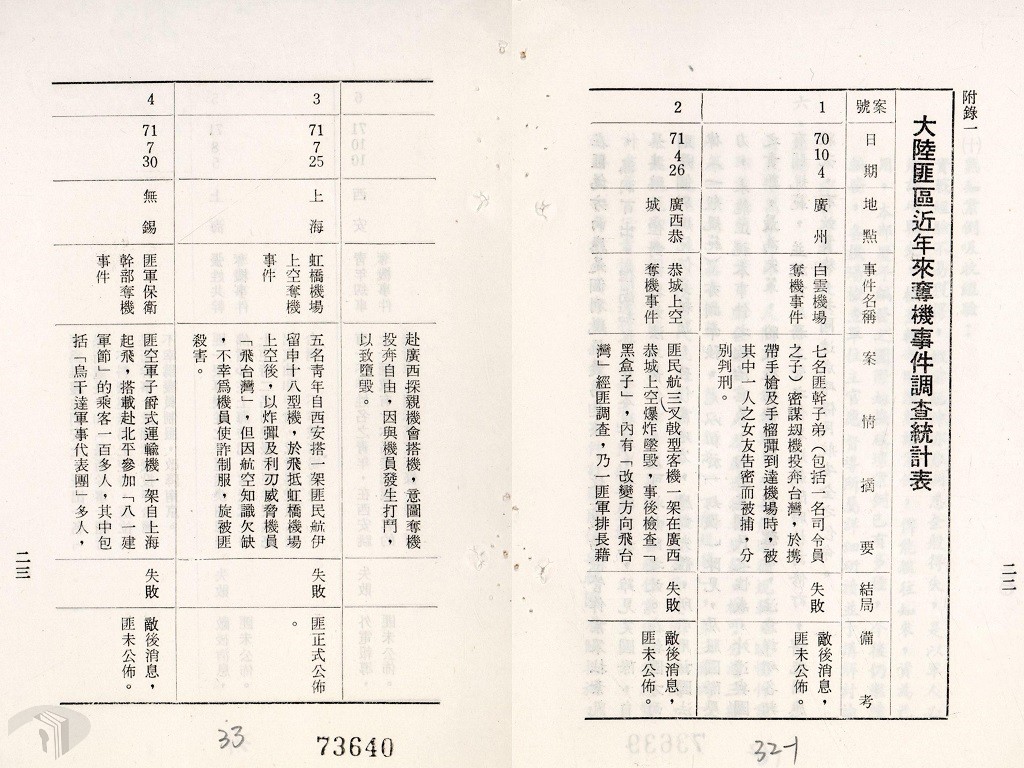 附錄一
大陸匪區近年來奪機事件調查統計表
案號
日期
地點
事件名稱
案情摘要
結局
備考
1
70
10
4
廣州
白雲機場
奪機事件
七名匪幹子弟（包括一名司令員
之子）密謀刼機投奔台灣，於携
帶手槍及手榴彈到達機場時，被
其中一人之女友告密而被捕，分
別判刑。
失敗
敵後消息，
匪未公佈。
2
71
4
26
廣西恭
城
恭城上空
奪機事件
匪民航三叉戟型客機一架在廣西
恭城上空爆炸墜毀，事後檢查「
黑盒子」，內有「改變方向飛台
灣」經匪調查，乃一匪軍排長藉
失敗
敵後消息，
匪未公佈。
二二
32-1
赴廣西探親機會搭機，意圖奪機
投奔自由，因與機員發生打鬥，
以致墮毀。
3
71
7
25
上海
虹橋機場
上空奪機
事件
五名青年自西安搭一架匪民航伊
留申十八型機，於飛抵虹橋機場
上空後，以炸彈及利刃威脅機員
「飛台灣」，但因航空知識欠缺
，不幸為機員使詐制服，旋被匪
殺害。
失敗
匪正式公佈
。
4
71
7
30
無錫
匪軍保衛
幹部奪機
事件
匪空軍子爵式運輸機一架自上海
起飛，搭載赴北平參加「八一建
軍節」的乘客一百多人，其中包
括「烏干達軍事代表團」多人，
失敗
敵後消息，
匪未公佈。
二三
33
73640